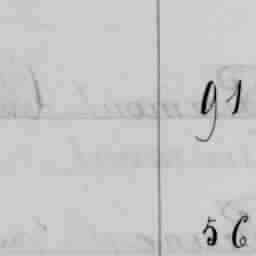 91
56